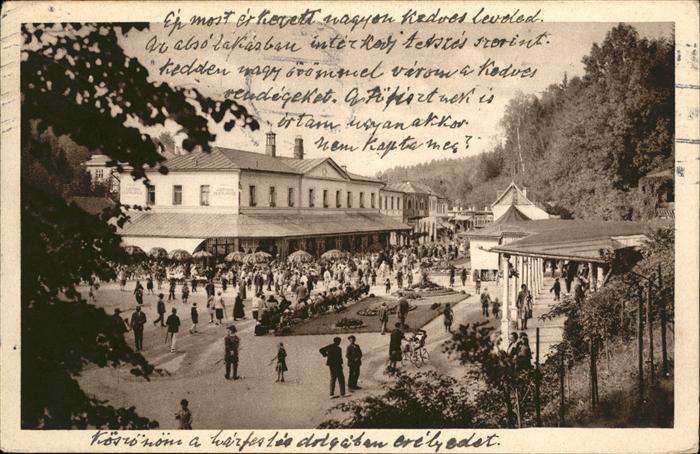 Ép most érkezett nagyon kedves leveled.
Az alsó lakásban intérkedj tetszés szerint.
Kedden nagy örömmel várom a kedves
vendégeket. A
írtam ugyanakkor
Nem kapta meg?
Köszönöm a házfestés dolgában erélyedet.